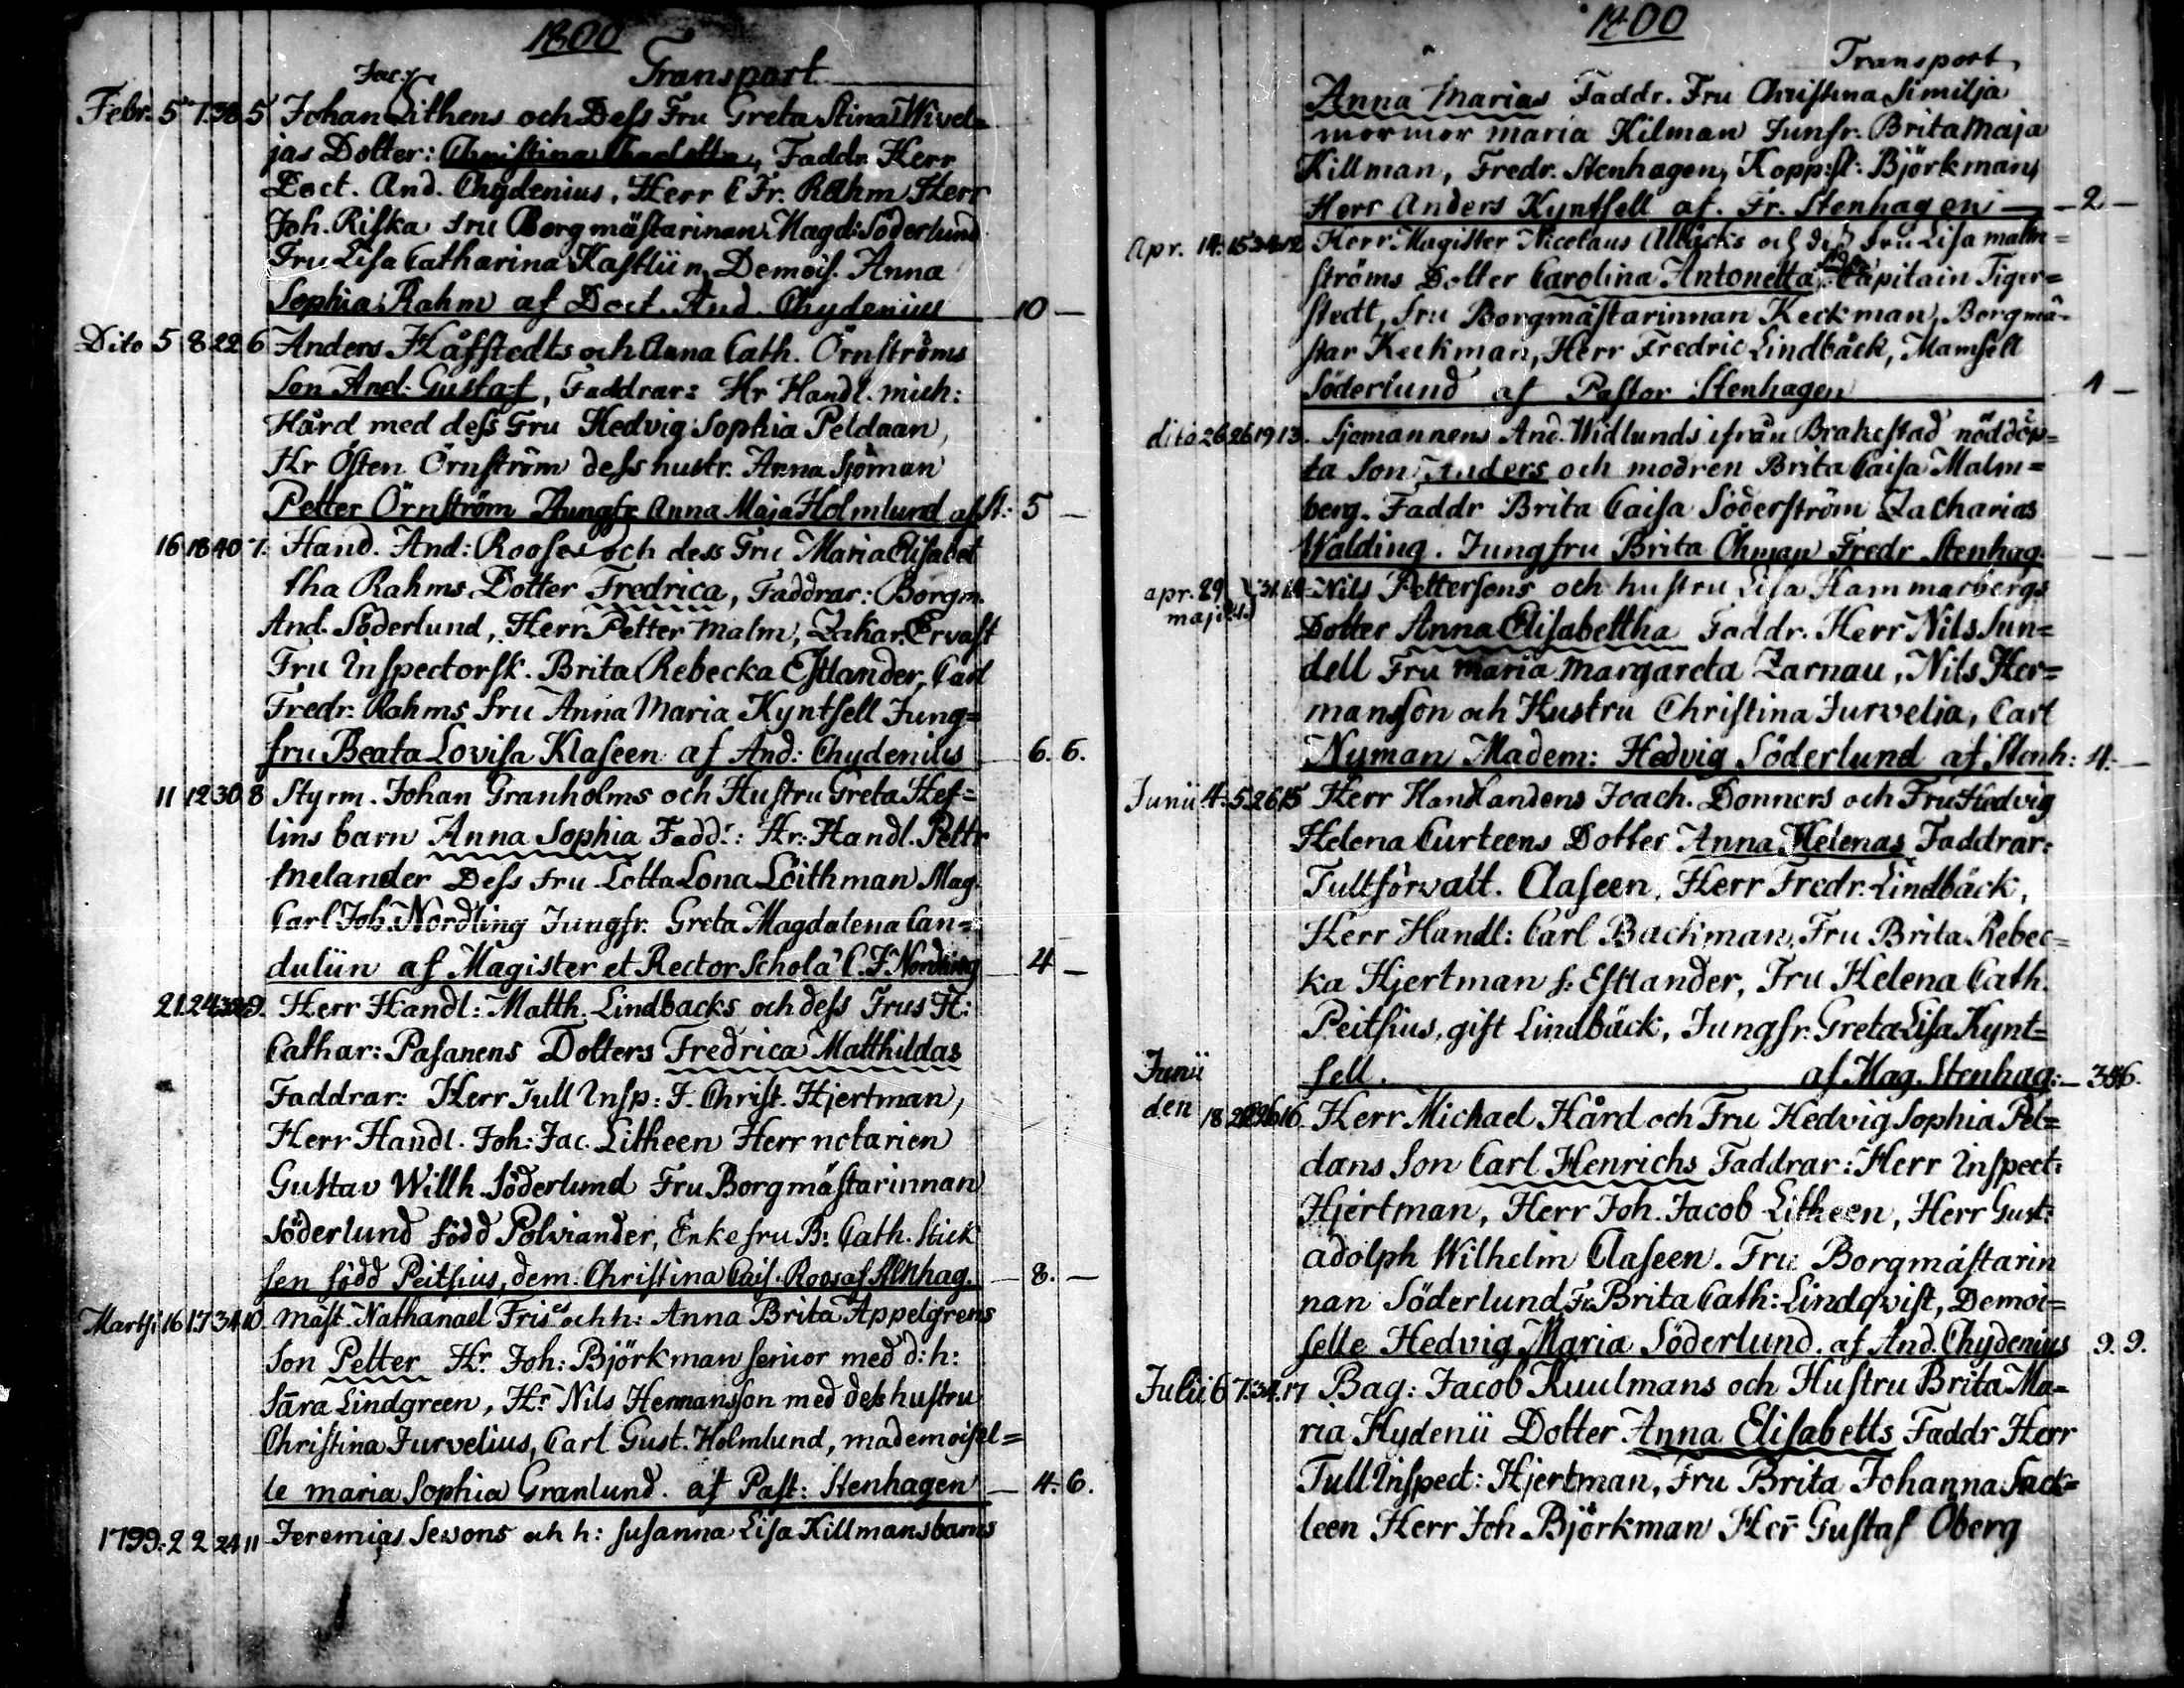 1800
Transport
Jac:
Febr. 5 7. 38. 5 Johan Lithens och Dess Fru Greta Stina Wivel=
jas Dotter: Christina Charlotta, Faddr. Herr
Doct. And. Chydenius, Herr C Fr. Rahm Herr
Joh. Riska Fru Borgmästarinan Magd: Söderlund
Fru Lisa Catharina Kastliin, Demois. Anna
Sophia Rahm af Doct. And. Chydenius 10 —
Dito 5 8 22 6 Anders Håfstedts och Anna Cath. Örnströms
Son And: Gustaf, Faddrar: Hr Handl. mich:
Hård med dess Fru Hedvig Sophia Peldaan,
Hr Östen Örnström dess hustr. Anna Sjöman
Petter Örnström Jungfr Anna Maja Holmlund af St: 5 —
16 18 40 7. Hand. And: Rooses och dess Fru Maria Elisabet
tha Rahms Dotter Fredrica, Faddrar: Borgm.
And. Söderlund, Herr Petter Malm, Zakar. Ervast
Fru Inspectorsk. Brita Rebecka Estlander, Carl
Fredr: Rahms fru Anna Maria Kyntsell Jung=
fru Beata Lovisa Klaseen af And: Chydenius 6. 6.
11 12 30 8 Styrm. Johan Granholms och Hustru Greta Hef=
lins barn Anna Sophia Fadd.r: Hr: Handl. Pettr
Melander Dess Fru Lotta Lona Löithman Mag.
Carl Joh. Nordling Jungfr. Greta Magdalena Can=
duliin af Magister et Rector Schola C. J. Nordling 4 —
21. 24. 9. Herr Handl: Matth. Lindbacks och dess Frus H:
Cathar: Pasanens Dotters Fredrica Matthildas
Faddrar: Herr Tull Insp: J. Christ. Hjertman,
Herr Handl. Joh: Jac. Litheen Herr notarien
Gustav Willh. Söderlund Fru Borgmästarinnan
Söderlund född Polviander, Enkefru B: Cath. Stick
sen född Peitsius, dem. Christina Cais. Roos af Stenhag. — 8. —
Martji 16 17 34 10. mäst. Nathanael Fris och h: Anna Brita Appelgrens
Son Petter Hr Joh: Björkman senior med d: h:
Sara Lindgreen, Hr. Nils Hermansson med dess hustru
Christina Jurvelius, Carl Gust. Holmlund, mademoisel=
le maria Sophia Granlund. af Past: Stenhagen — 4. 6.
1799. 2 2 24 11 Jeremias Sesons och h: Susanna Lisa Killmans barns
1800
Transport
Anna Marias Faddr. Fru Christina Similja
mormor maria Kilman Junfr. Brita Maja
Killman, Fredr. Stenhagen, Kopp:sl: Björkmans
Herr Anders Kyntsell af. Fr. Stenhagen — — 2 —
Apr. 14. 15 34 12 Herr Magister Nicolaus Alläcks och dess fru Lisa malm=
ströms Dotter Carolina Antonetta Capitain Tiger=
stedt, Fru Borgmästarinnan Keckman, Borgmä=
star Keckman, Herr Fredric Lindbäck, Mamsell
Söderlund af Pastor Stenhagen 1 —
dito 26 26 19 13. Sjomannens And. Widlunds ifrån Brahestad nöddöp=
ta Son Anders och modren Brita Caisa Malm=
berg. Faddr Brita Caisa Söderström Zacharias
Walding. Jungfru Brita Öhman Fredr Stenhag. — —
apr. 29 31. 14. Nils Pettersons och hustru Lisa Hammarbergs
maji
Dotter Anna Elisabettha Faddr. Herr Nils Sun=
dell Fru Maria Margareta Zarnau, Nils Her=
mansson och Hustru Christina Jurvelia, Carl
Nyman Madem: Hedvig Söderlund af Stenh: 4. —
Junii 4. 5. 26 15 Herr Handlandens Joach. Donners och Fru Hedvig
Helena Curteens Dotter Anna Helenas Faddrar:
Tullförvalt. Claseen, Herr Fredr. Lindbäck,
Herr Handl: Carl Backman, Fru Brita Rebec=
ka Hjertman f: Estlander, Fru Helena Cath.
Peitsius, gift Lindbäck, Jungfr. Greta Lisa Kynt=
sell. af Mag. Stenhag:
Junii
den 18 16. Herr Michael Hård och Fru Hedvig Sophia Pel=
dans Son Carl Henrichs Faddrar: Herr Inspect:
Hjertman, Herr Joh. Jacob Litheen, Herr Gust:
adolph Wilhelm Claseen. Fru Borgmästarin
nan Söderlund Fr. Brita Cath: Lindqvist, Demoi=
selle Hedvig Maria Söderlund. af And. Chydenius 9. 9.
Julii 6 7. 34. 17 Bag: Jacob Kuulmans och Hustru Brita Ma=
ria Hydenii Dotter Anna Elisabetts Faddr Herr
Tull Inspect: Hjertman, Fru Brita Johanna Sack=
leen Herr Joh Björkman Herr Gustaf Öberg